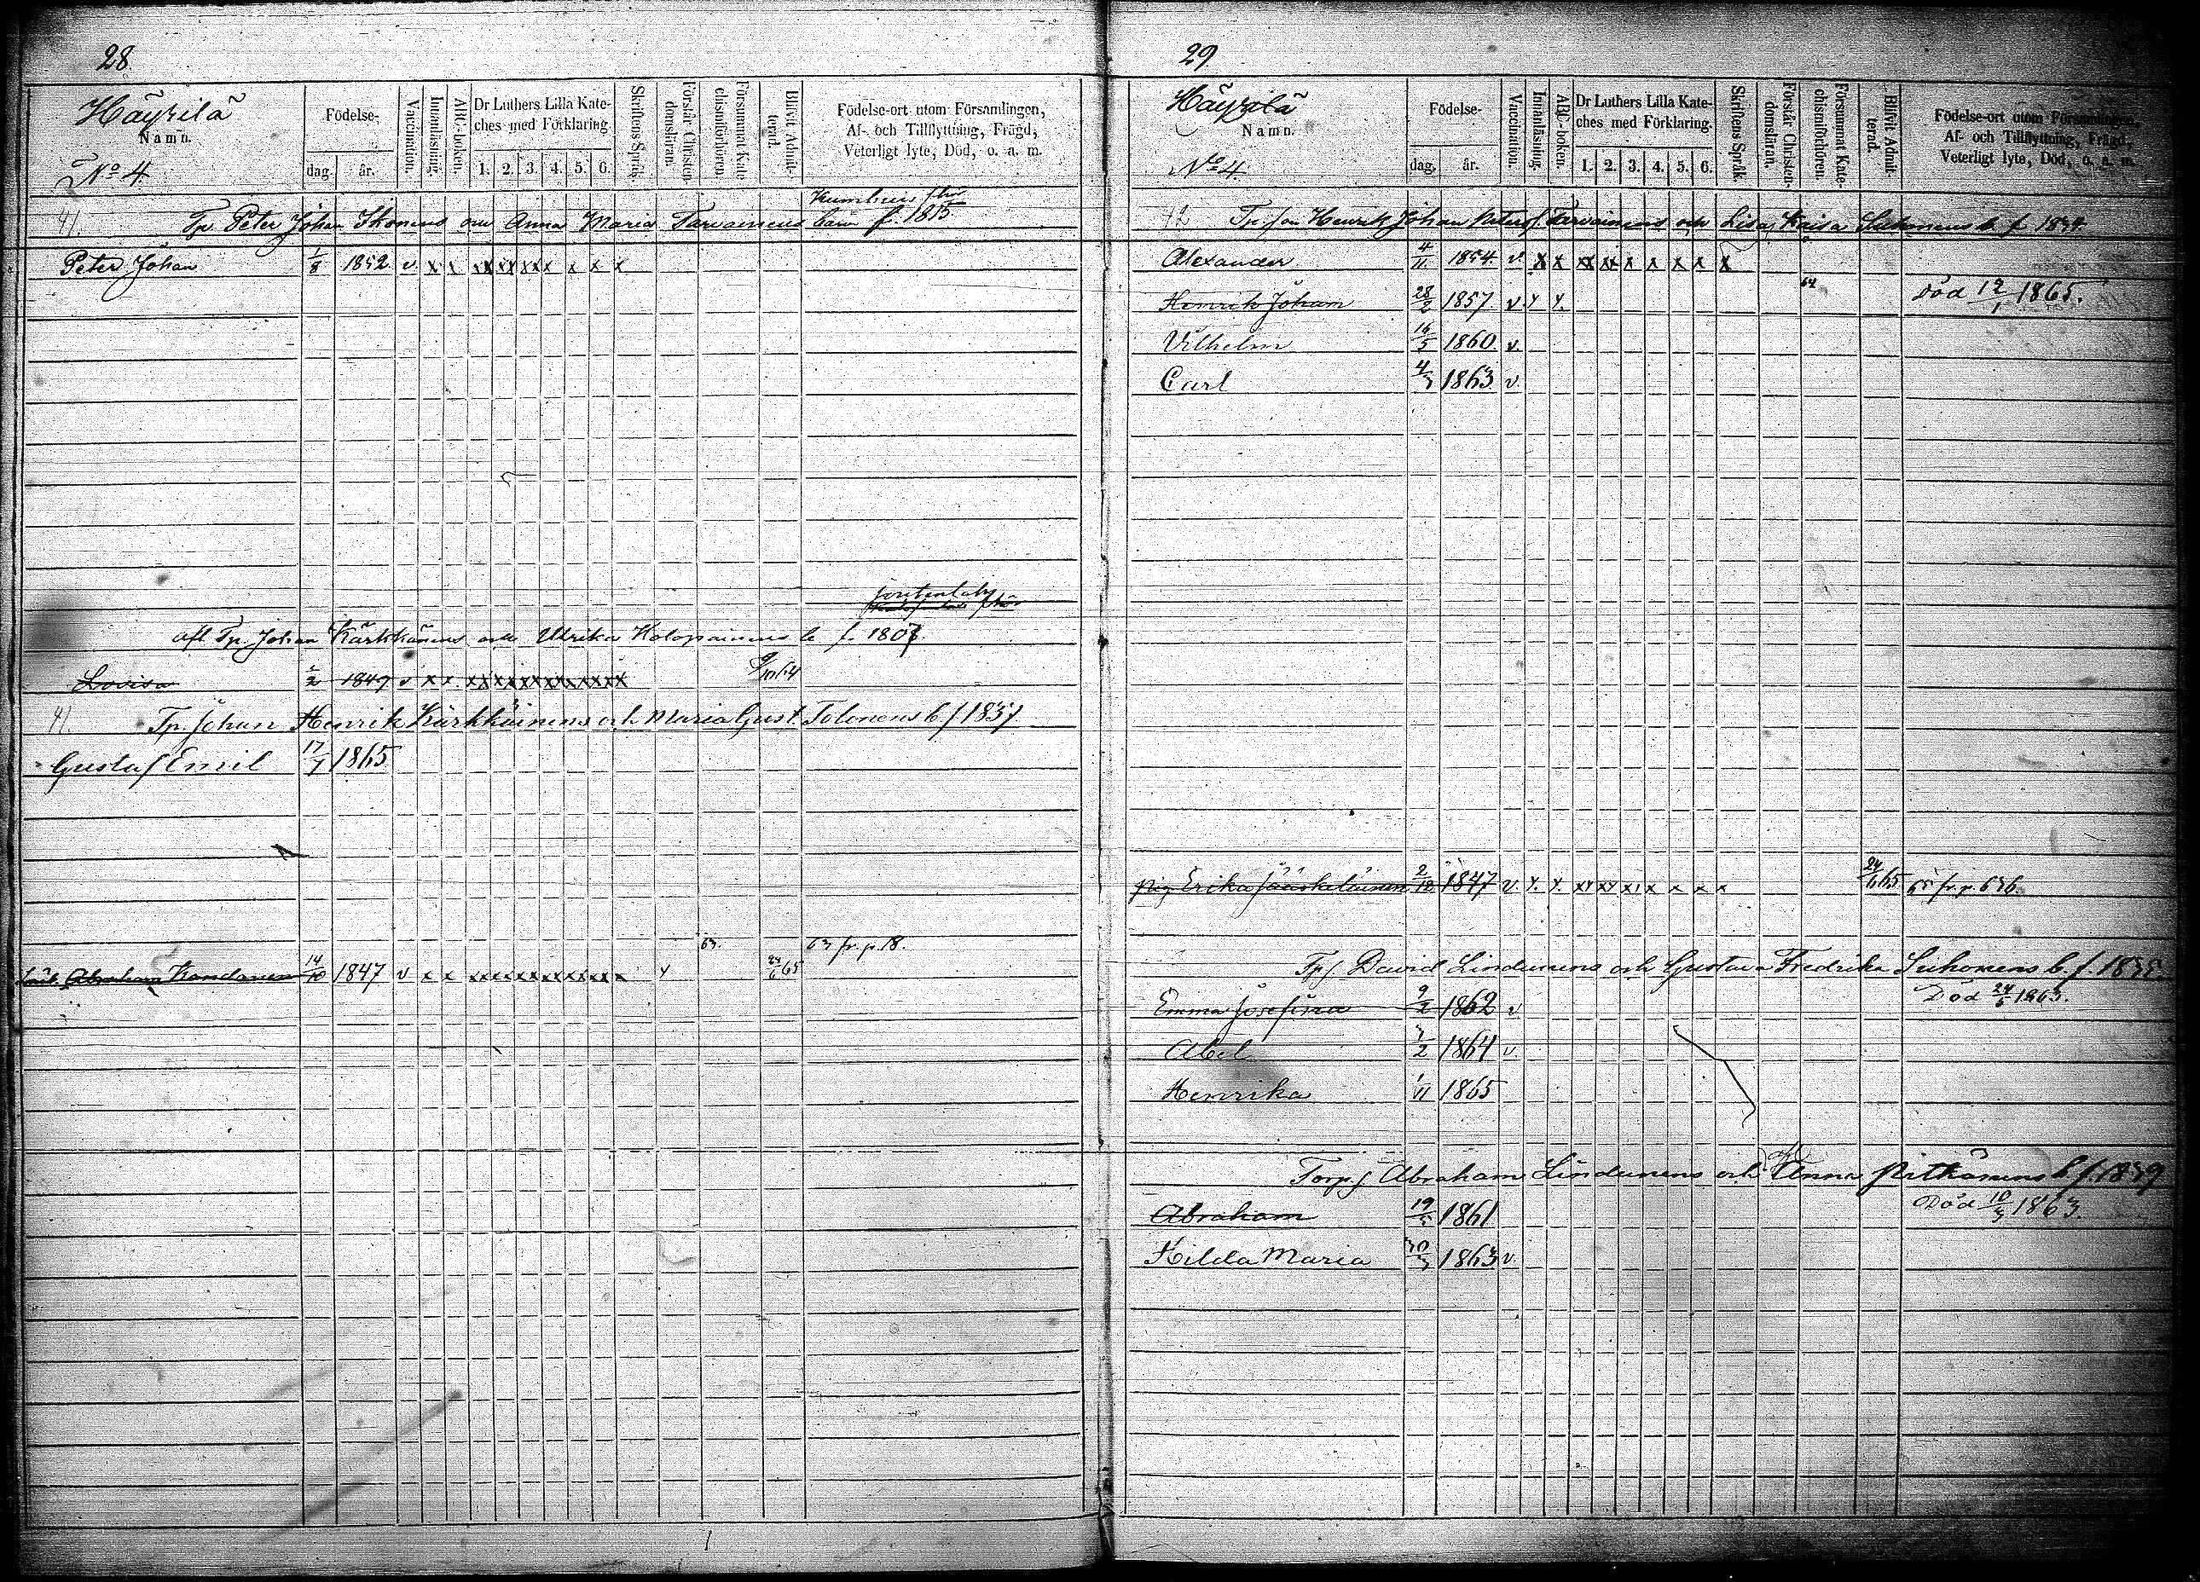 28
Häyrilä
Namn.
No 4.
Födelse-
dag.
år.
Vaccination.
Innanläsning.
ABC-boken.
Dr Luthers Lilla Kate-
ches med Förklaring.
1. 2. 3. 4. 5. 6.
Skriftens Språk.
Förstår Christen-
domsläran.
Försummat Kate-
chismiförhören.
Blifvit Admit-
terad.
Födelse-ort utom Församlingen,
Af- och Tillflyttning, Frägd,
Veterligt lyte, Död, o. a. m.
41. Tp Peter Johan Ikonens och Anna Maria Tarvainens barn f. 1815
Peter Johan 1/8 1852 v x x xx xx xx x x x x
afl Tp. Johan Kärkkäinens och Ulrika Holopainens b f. 1807.
Lovisa /2 1849 v x x xx xx xx xx xx xx x
9/10 64
41. Tp. Johan Henrik Kärkkäinens och Maria Gust. Tolonens b f 1837
Gustaf Emil 17/1 1865
63. 63 fr. p. 18.
Abraham Kandanen 14/10 1847 v x x xx xx xx xx xx xx x x 24/6 65
29
Häyrilä
Namn.
No 4.
Födelse-
dag.
år.
Vaccination.
Innanläsning.
ABC-boken.
Dr Luthers Lilla Kate-
ches med Förklaring.
1. 2. 3. 4. 5. 6.
Skriftens Språk.
Förstår Christen-
domsläran.
Försummat Kate-
chismiförhören.
Blifvit Admit-
terad.
Födelse-ort utom Församlingen,
Af- och Tillflyttning, Frägd,
Veterligt lyte, Död, o. a. m.
42 Tp. son Henrik Johan Tarvainens och Lisa Kaisa Suhonens b. f. 1834.
Alexander 4/11 1854 v x x xx xx x x x x x
Henrik Johan 28/2 1857 v x x. 64 Död 12/1 1865.
Vilhelm 16/5 1860 v.
Carl 4/3 1863 v.
pig Erika Jääskeläinen 2/12 1847 v. x. x. xx xx x x x x x x 24/6 65 65 fr. p. 636.
Tp s David Lindunens och Gustava Fredrika Suhonens b. f. 1835.
Emma Josefina 9/2 1862 v Död 24/6 1863.
Abel 3/2 1864 v.
Henrika 1/11 1865
Torp s Abraham Lindunens och Anna Pitkänens b f. 1839
Abraham 19/5 1861 Död 10/3 1863.
Hilda Maria 30/3 1863 v.